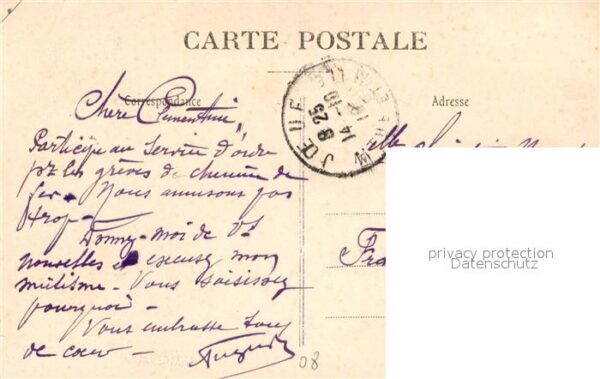 CARTE POSTALE
Correspondance
Adresse
Chère Clémentine,
Participe au service d'ordre
pr les grèves de chemin de
fer - Nous amusons pas
trop -
Donnez-moi de Vs
nouvelles et excusez mon
mutisme - Vous saisissez
pourquoi -
Vous embrasse tous
de cœur -
JŒUF
8 25
14 -10
Fra
privacy protection
Datenschutz
08